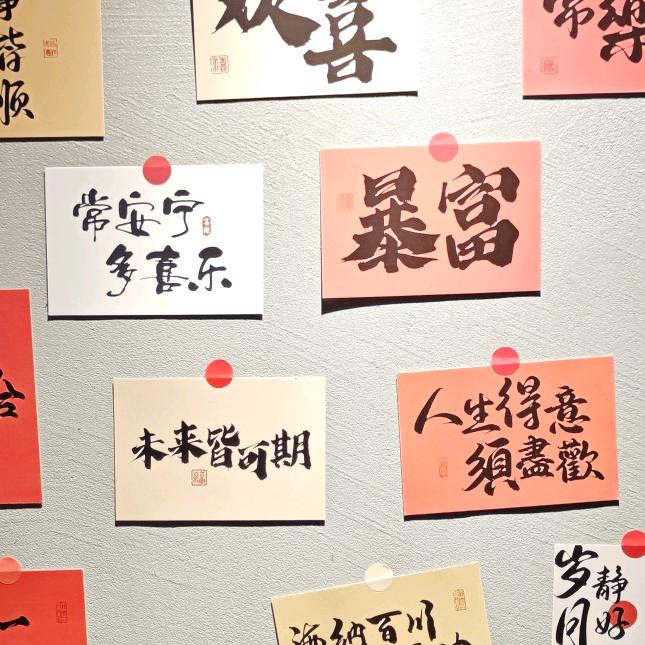 皆
顺
欢喜
常樂
常安宁
多喜乐
暴富
未来皆可期
人生得意
須盡歡
海纳百川
岁月
静好